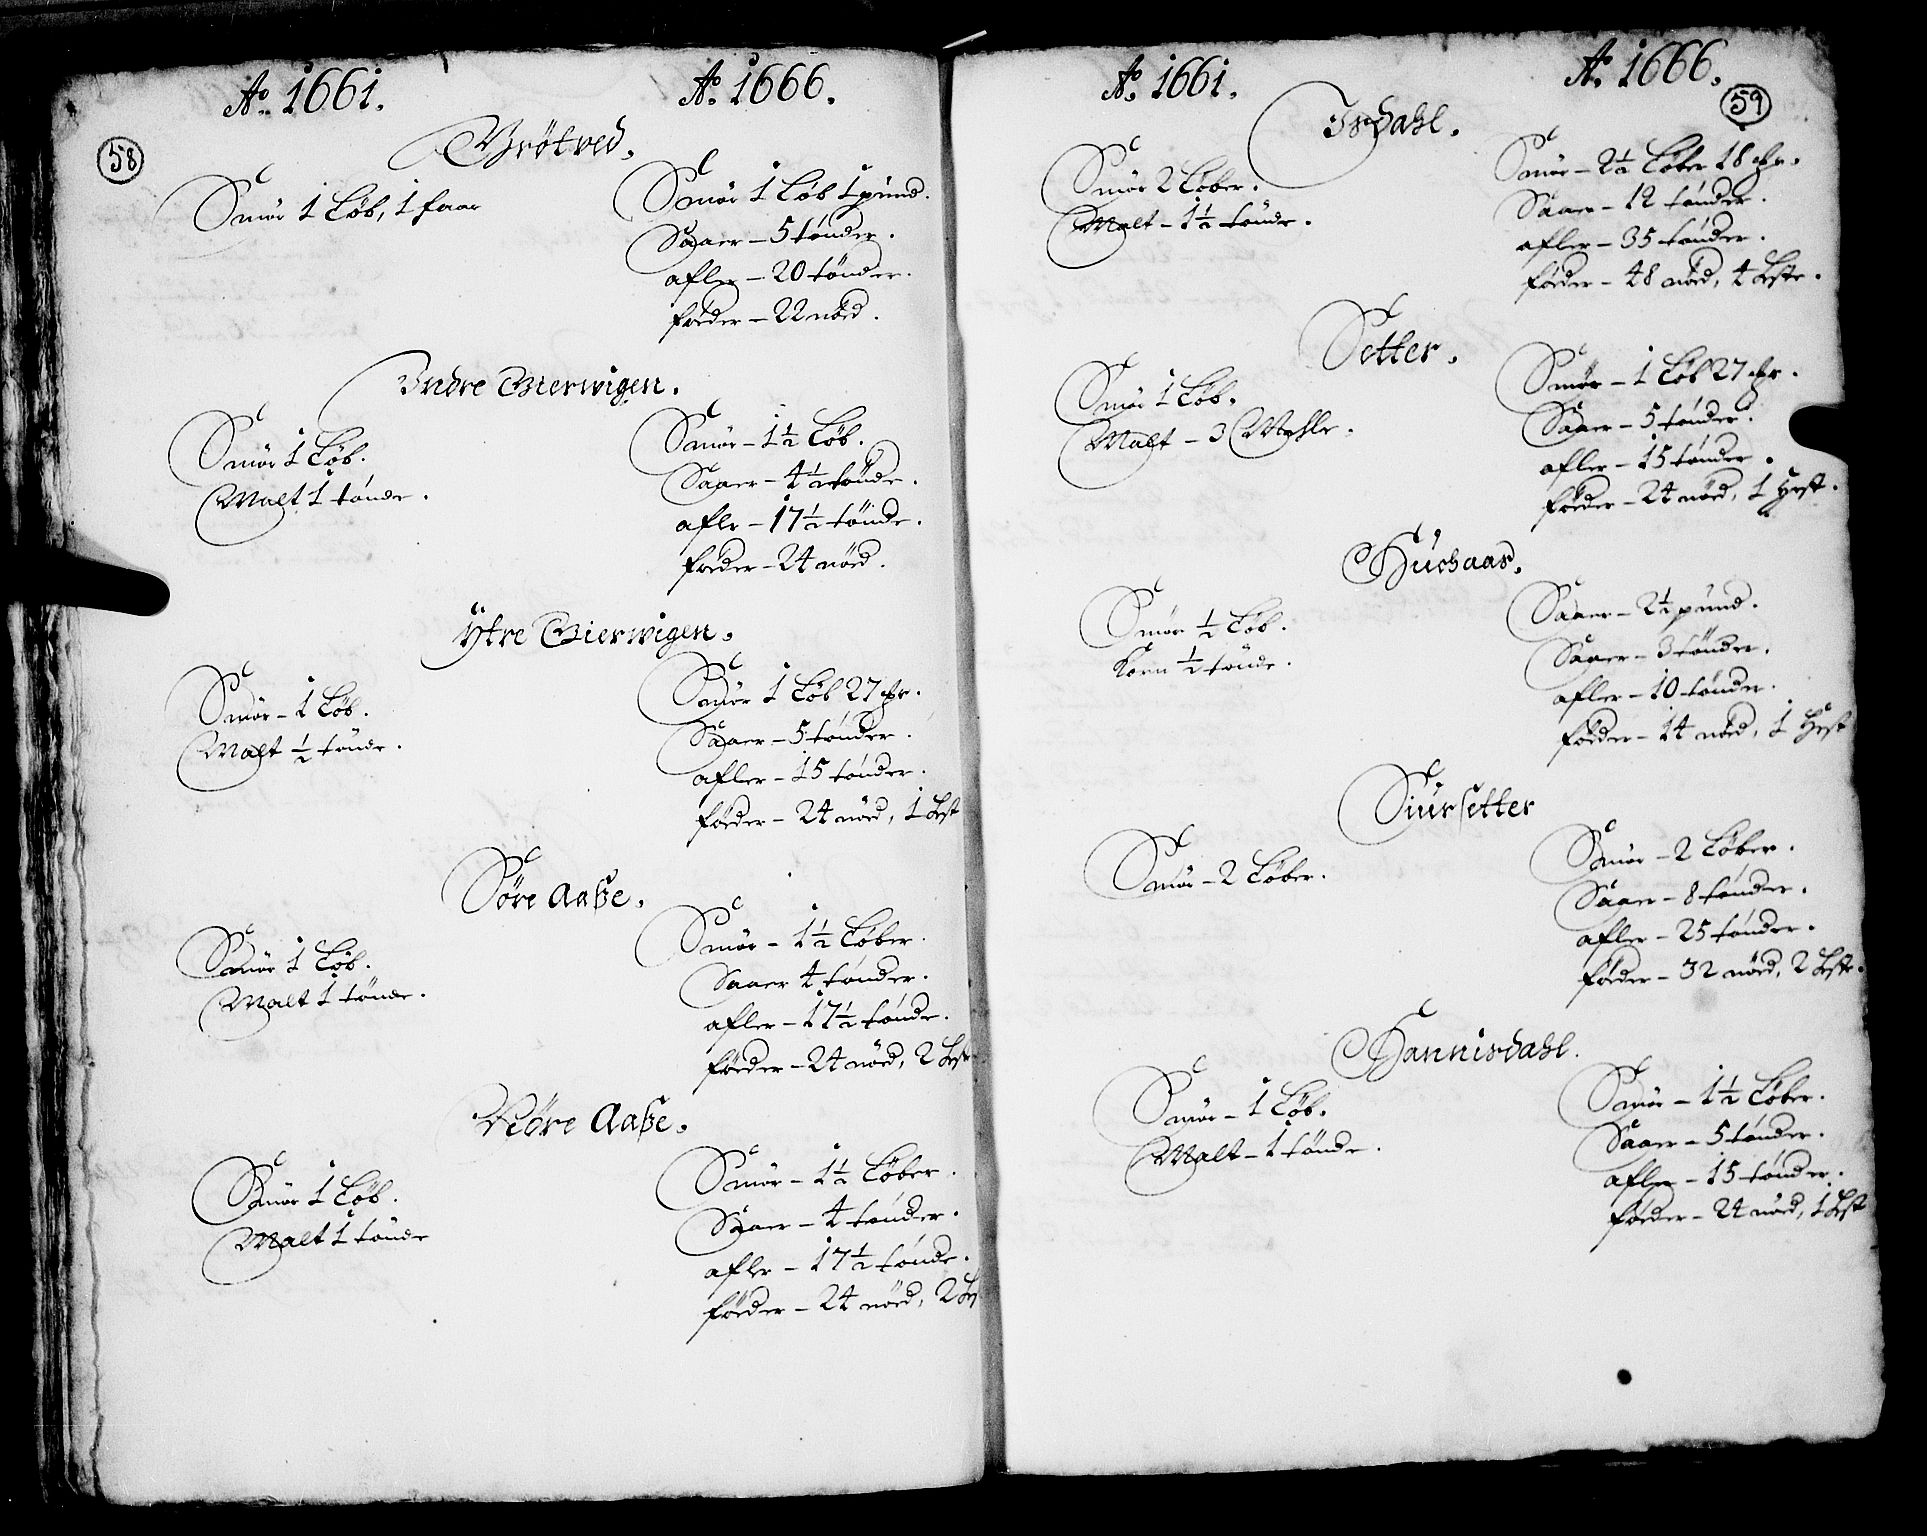 58
Ao. 1661. Ao. 1666.
Brötved.
Smör 1 Löb, 1 faar
Smör 1 Löb 1 pund.
Saaer - 5 tönder.
afler - 20 tönder.
föder - 22 nöd.
Indre Bierwigen.
Smör 1 Löb.
Malt 1 tönde.
Smör - 1½ Löb.
Saaer - 4½ tönde.
afle - 17½ tönde.
föder - 24 nöd.
Ytre Bierwigen.
Smör - 1 Löb.
Malt ½ tönde.
Smör 1 Löb 27 mr.
Saaer - 5 tönder.
afler - 15 tönder.
föder - 24 nöd, 1 Hest
Söre Aaße.
Smör 1 Löb.
Malt 1 tönde.
Smör - 1½ Löber.
Saaer 4 tönder.
afler - 17½ tönde.
föder - 24 nöd, 2 Hest
Nöre Aaße.
Smör 1 Löb.
Malt 1 tönde
Smör - 1½ Löber.
Saaer - 4 tönder.
afler - 17½ tönde.
föder - 24 nöd, 2 He
59
Ao. 1661. Ao. 1666.
Isdahl.
Smör 2 Löber.
Malt - 1½ tönde.
Smör - 2½ Löber 18 mr.
Saaer - 12 tönder.
afler - 35 tönder.
föder - 48 nöd, 4 Heste.
Setter.
Smör 1 Löb.
Malt - 3 Mehle.
Smör - 1 Löb 27 mr.
Saaer - 5 tönder.
afler - 15 tönder.
föder - 24 nöd, 1 Hest.
Huchaas.
Smör ½ Löb.
Korn ½ tönde.
Saaer - 2½ pund.
Saaer - 3 tönder.
afler - 10 tönder.
föder - 14 nöd, 1 Hest
Siursetter
Smör - 2 Löber.
Smör - 2 Löber.
Saaer - 8 tönder.
afler - 25 tönder.
föder - 32 nöd, 2 Heste.
Hannisdahl.
Smör - 1 Löb.
Malt - 1 tönde.
Smör - 1½ Löber.
Saaer - 5 tönder.
afler - 15 tönder.
föder - 24 nöd, 1 Hest